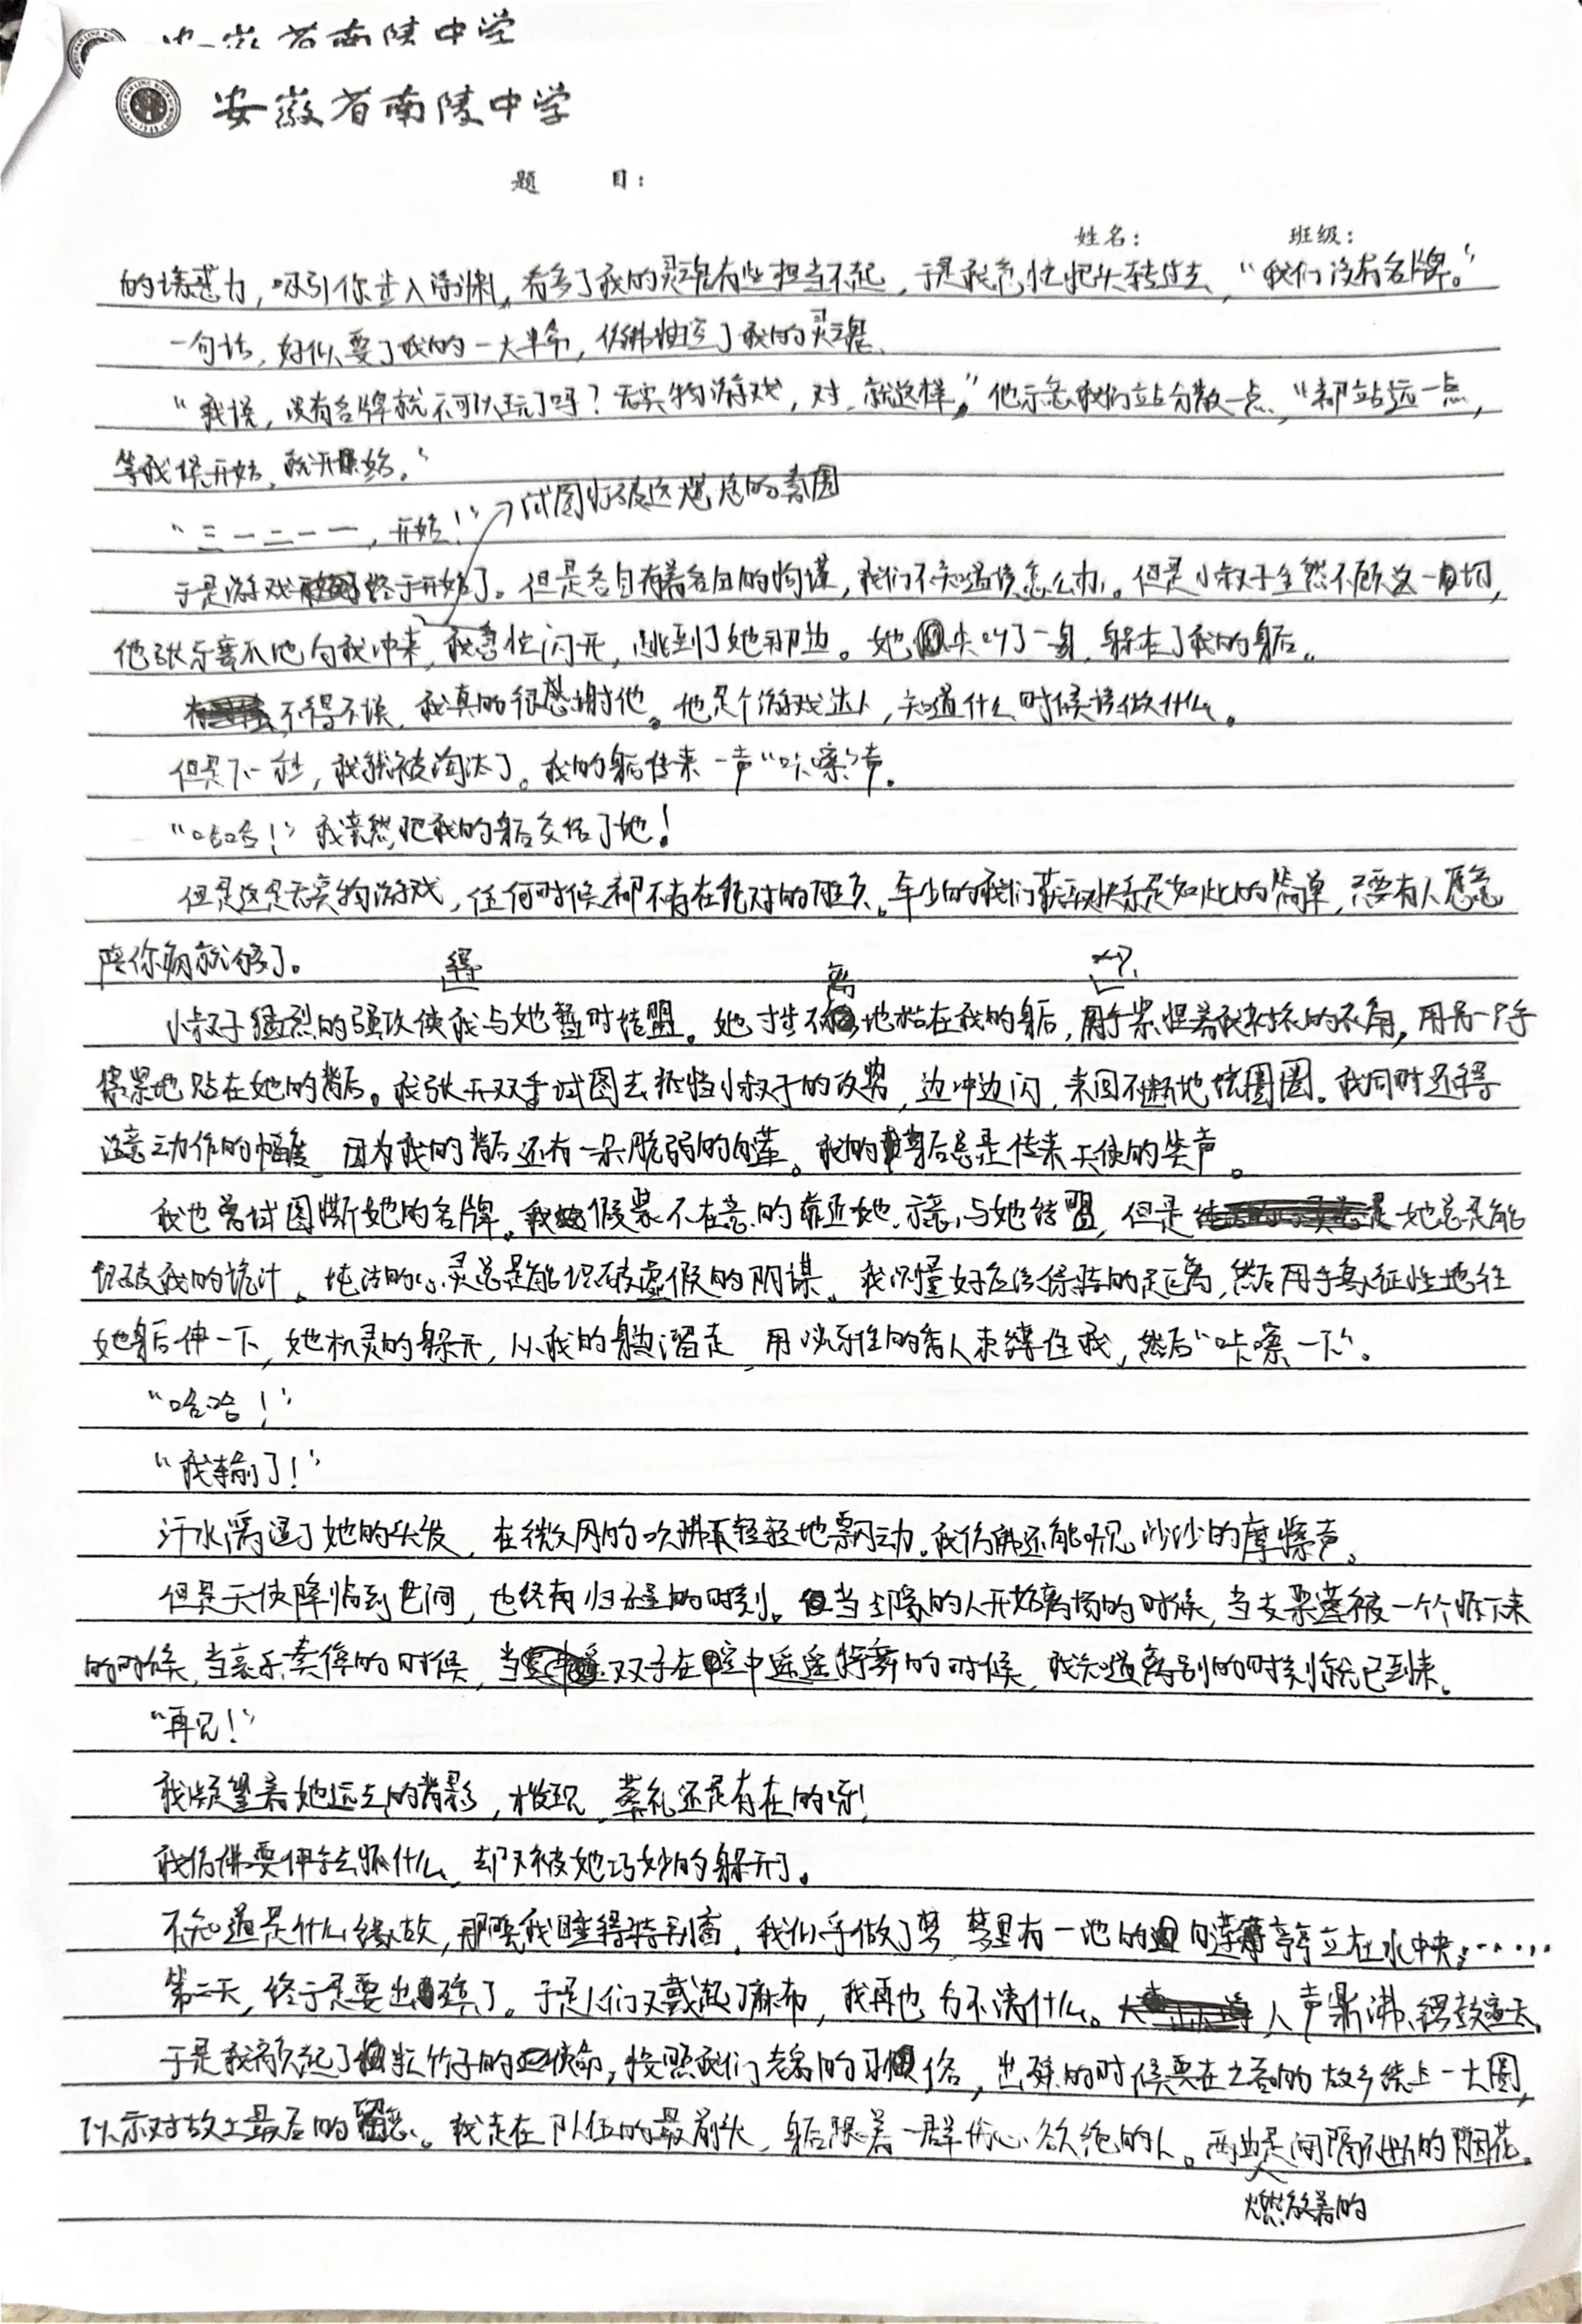 安徽省南陵中学
安徽省南陵中学
题 目：
姓名： 班级：
的诱惑力，吸引你步入深渊。看多了我的灵魂有些担当不起，于是我急忙把头转过去，“我们没有名牌。”
一句话，好似要了我的一大半命，仿佛抽空了我的灵魂。
“我说，没有名牌就不可以玩了吗？无实物游戏，对，就这样。”他示意我们站分散一点，“都站远一点，
等我说开始，就开始。”
“三一二一一，开始！” 试图打破这尴尬的氛围
于是游戏终于开始了。但是各自有着各自的拘谨，我们不知道该怎么办。但是小叔子全然不顾这一切，
他张牙舞爪地向我冲来，我急忙闪开，跳到了她那边。她尖叫了一声，躲在了我的身后。
不得不说，我真的很感谢他。他是个游戏达人，知道什么时候该做什么。
但是下一秒，我就被淘汰了。我的身后传来一声“咔嚓”声。
“哈哈！”我竟然把我的身后交给了她！
但是这是无实物游戏，任何时候都不存在绝对的胜负。年少的我们获取快乐是如此的简单，只要有人愿意
陪你疯就够了。
得 离 一只
小叔子猛烈的强攻使我与她暂时结盟。她寸步不地粘在我的身后，用手紧捏着我衬衣的衣角，用另一只手
紧紧地贴在她的背后。我张开双手试图去抵挡小叔子的攻势，边冲边闪，来回不断地绕圈圈。我同时还得
注意动作的幅度，因为我的背后还有一朵脆弱的白莲。我的背后总是传来天使的笑声。
我也尝试图撕她的名牌。我假装不在意的靠近她，示意与她结盟，但是她总是能
识破我的诡计。纯洁的心灵总是能识破虚假的阴谋。我衡量好应该保持的距离，然后用手象征性地往
她身后伸一下，她机灵的躲开，从我的身边溜走，用 的 束缚住我，然后“咔嚓一下”。
“哈哈！”
“我输了！”
汗水濡湿了她的头发，在微风的吹拂下轻轻地飘动。我仿佛还能听见沙沙的摩擦声。
但是天使降临到世间，也终有归去的时刻。当 的人开始离场的时候，当支架蓬被一个个收下来
的时候，当哀乐奏停的时候，当双手在空中遥遥挥舞的时候，我知道离别的时刻就已到来。
“再见！”
我凝望着她远去的背影，才发现，葬礼还是存在的呀！
我仿佛要伸手去抓什么，却又被她巧妙的躲开了。
不知道是什么缘故，那晚我睡得特别香，我似乎做了梦，梦里有一池的白莲亭亭立在水中央……
第二天，终于是要出殡了。于是人们又戴起了麻布，我再也分不清什么。人声鼎沸、锣鼓喧天。
于是我肩负起了扛竹子的使命，按照我们老家的习俗，出殡的时候要在之前的故乡绕上一大圈，
以示对故土最后的留恋。我走在队伍的最前头，身后跟着一群伤心欲绝的人。两边是间隔不断的烟花。
燃放着的